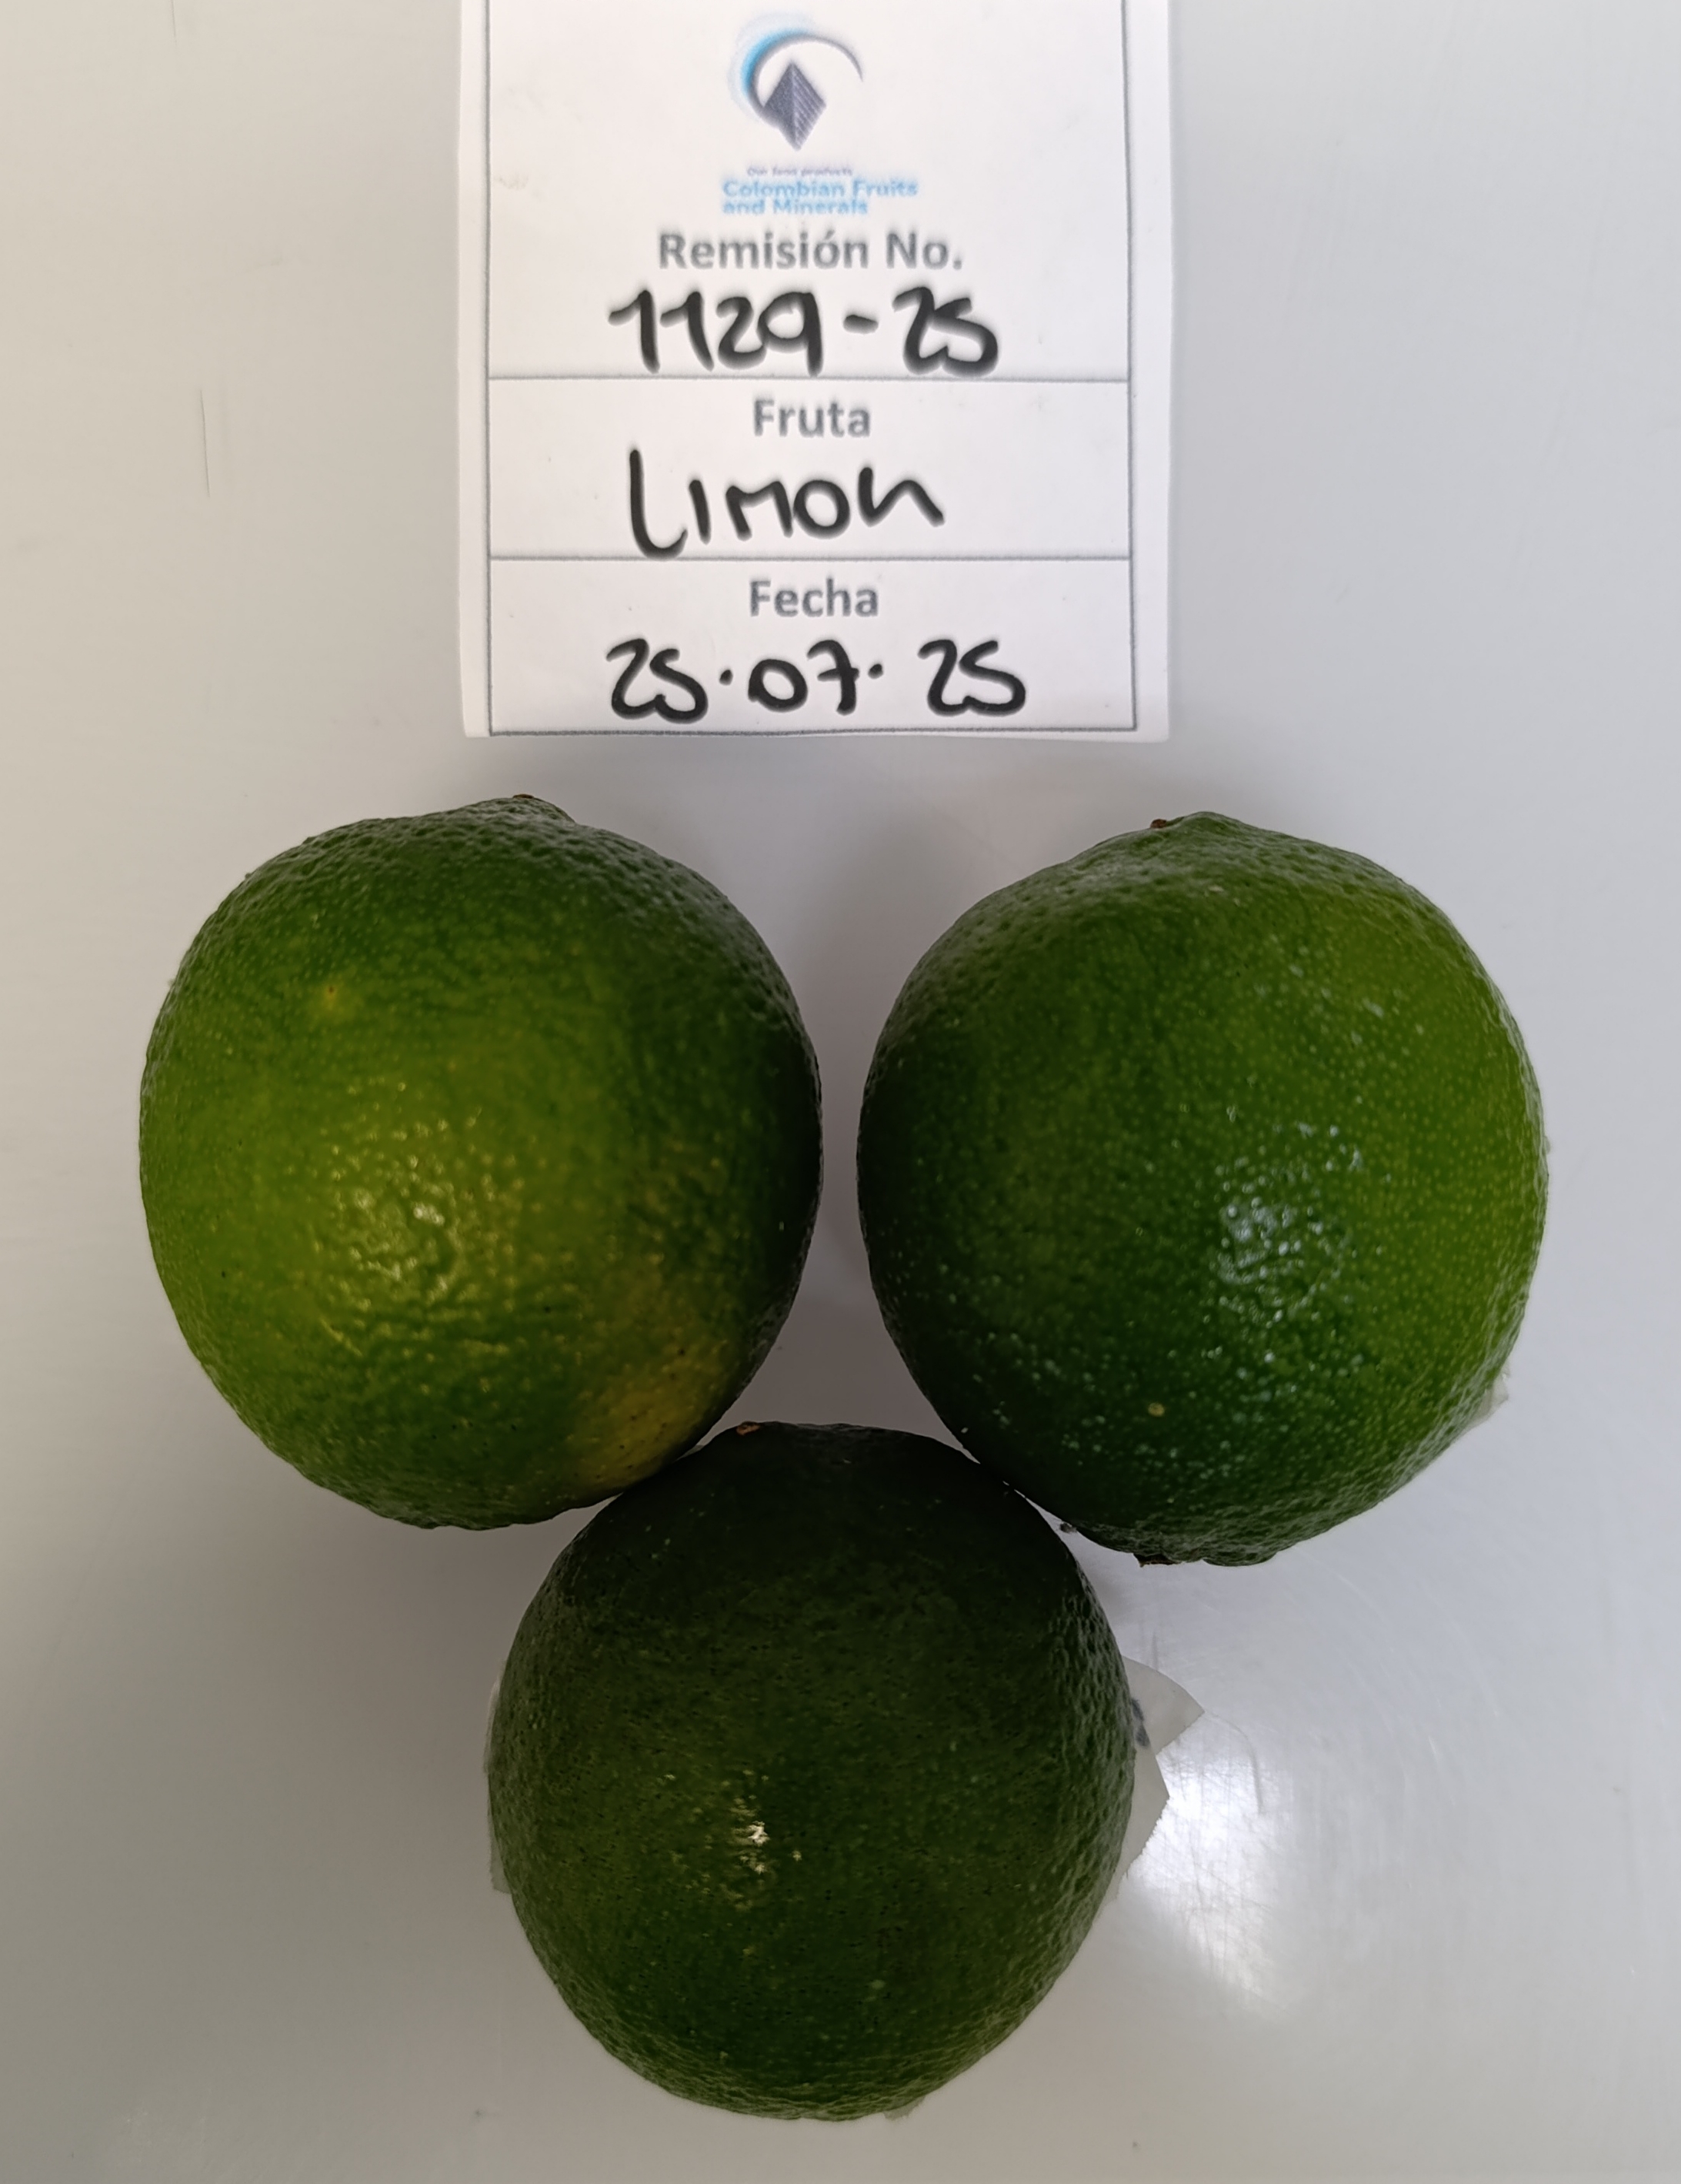 Our best products
Colombian Fruits
and Minerals
Remisión No.
1129-25
Fruta
Limon
Fecha
25.07.25